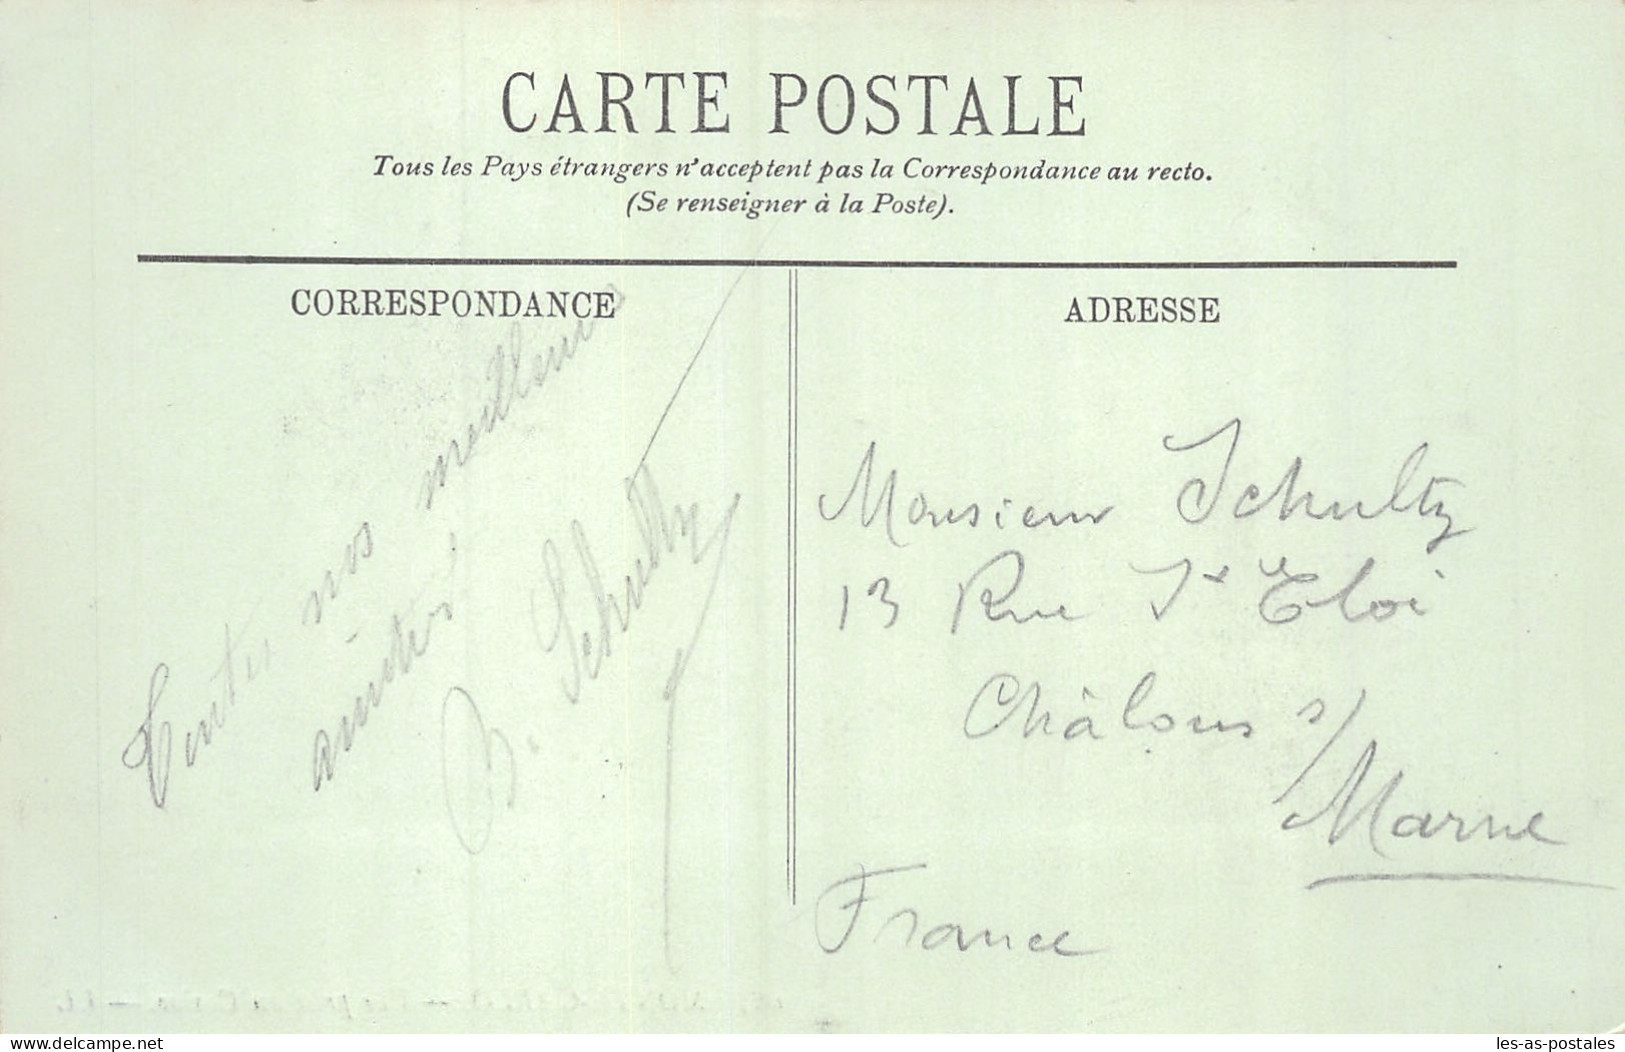 CARTE POSTALE
Tous les Pays étrangers n'acceptent pas la Correspondance au recto.
(Se renseigner à la Poste).
CORRESPONDANCE
Toutes nos meilleures
amitiés
Schultz
ADRESSE
Monsieur Schultz
13 Rue St Eloi
Châlons s/
Marne
France
delcampe.net
les-as-postales